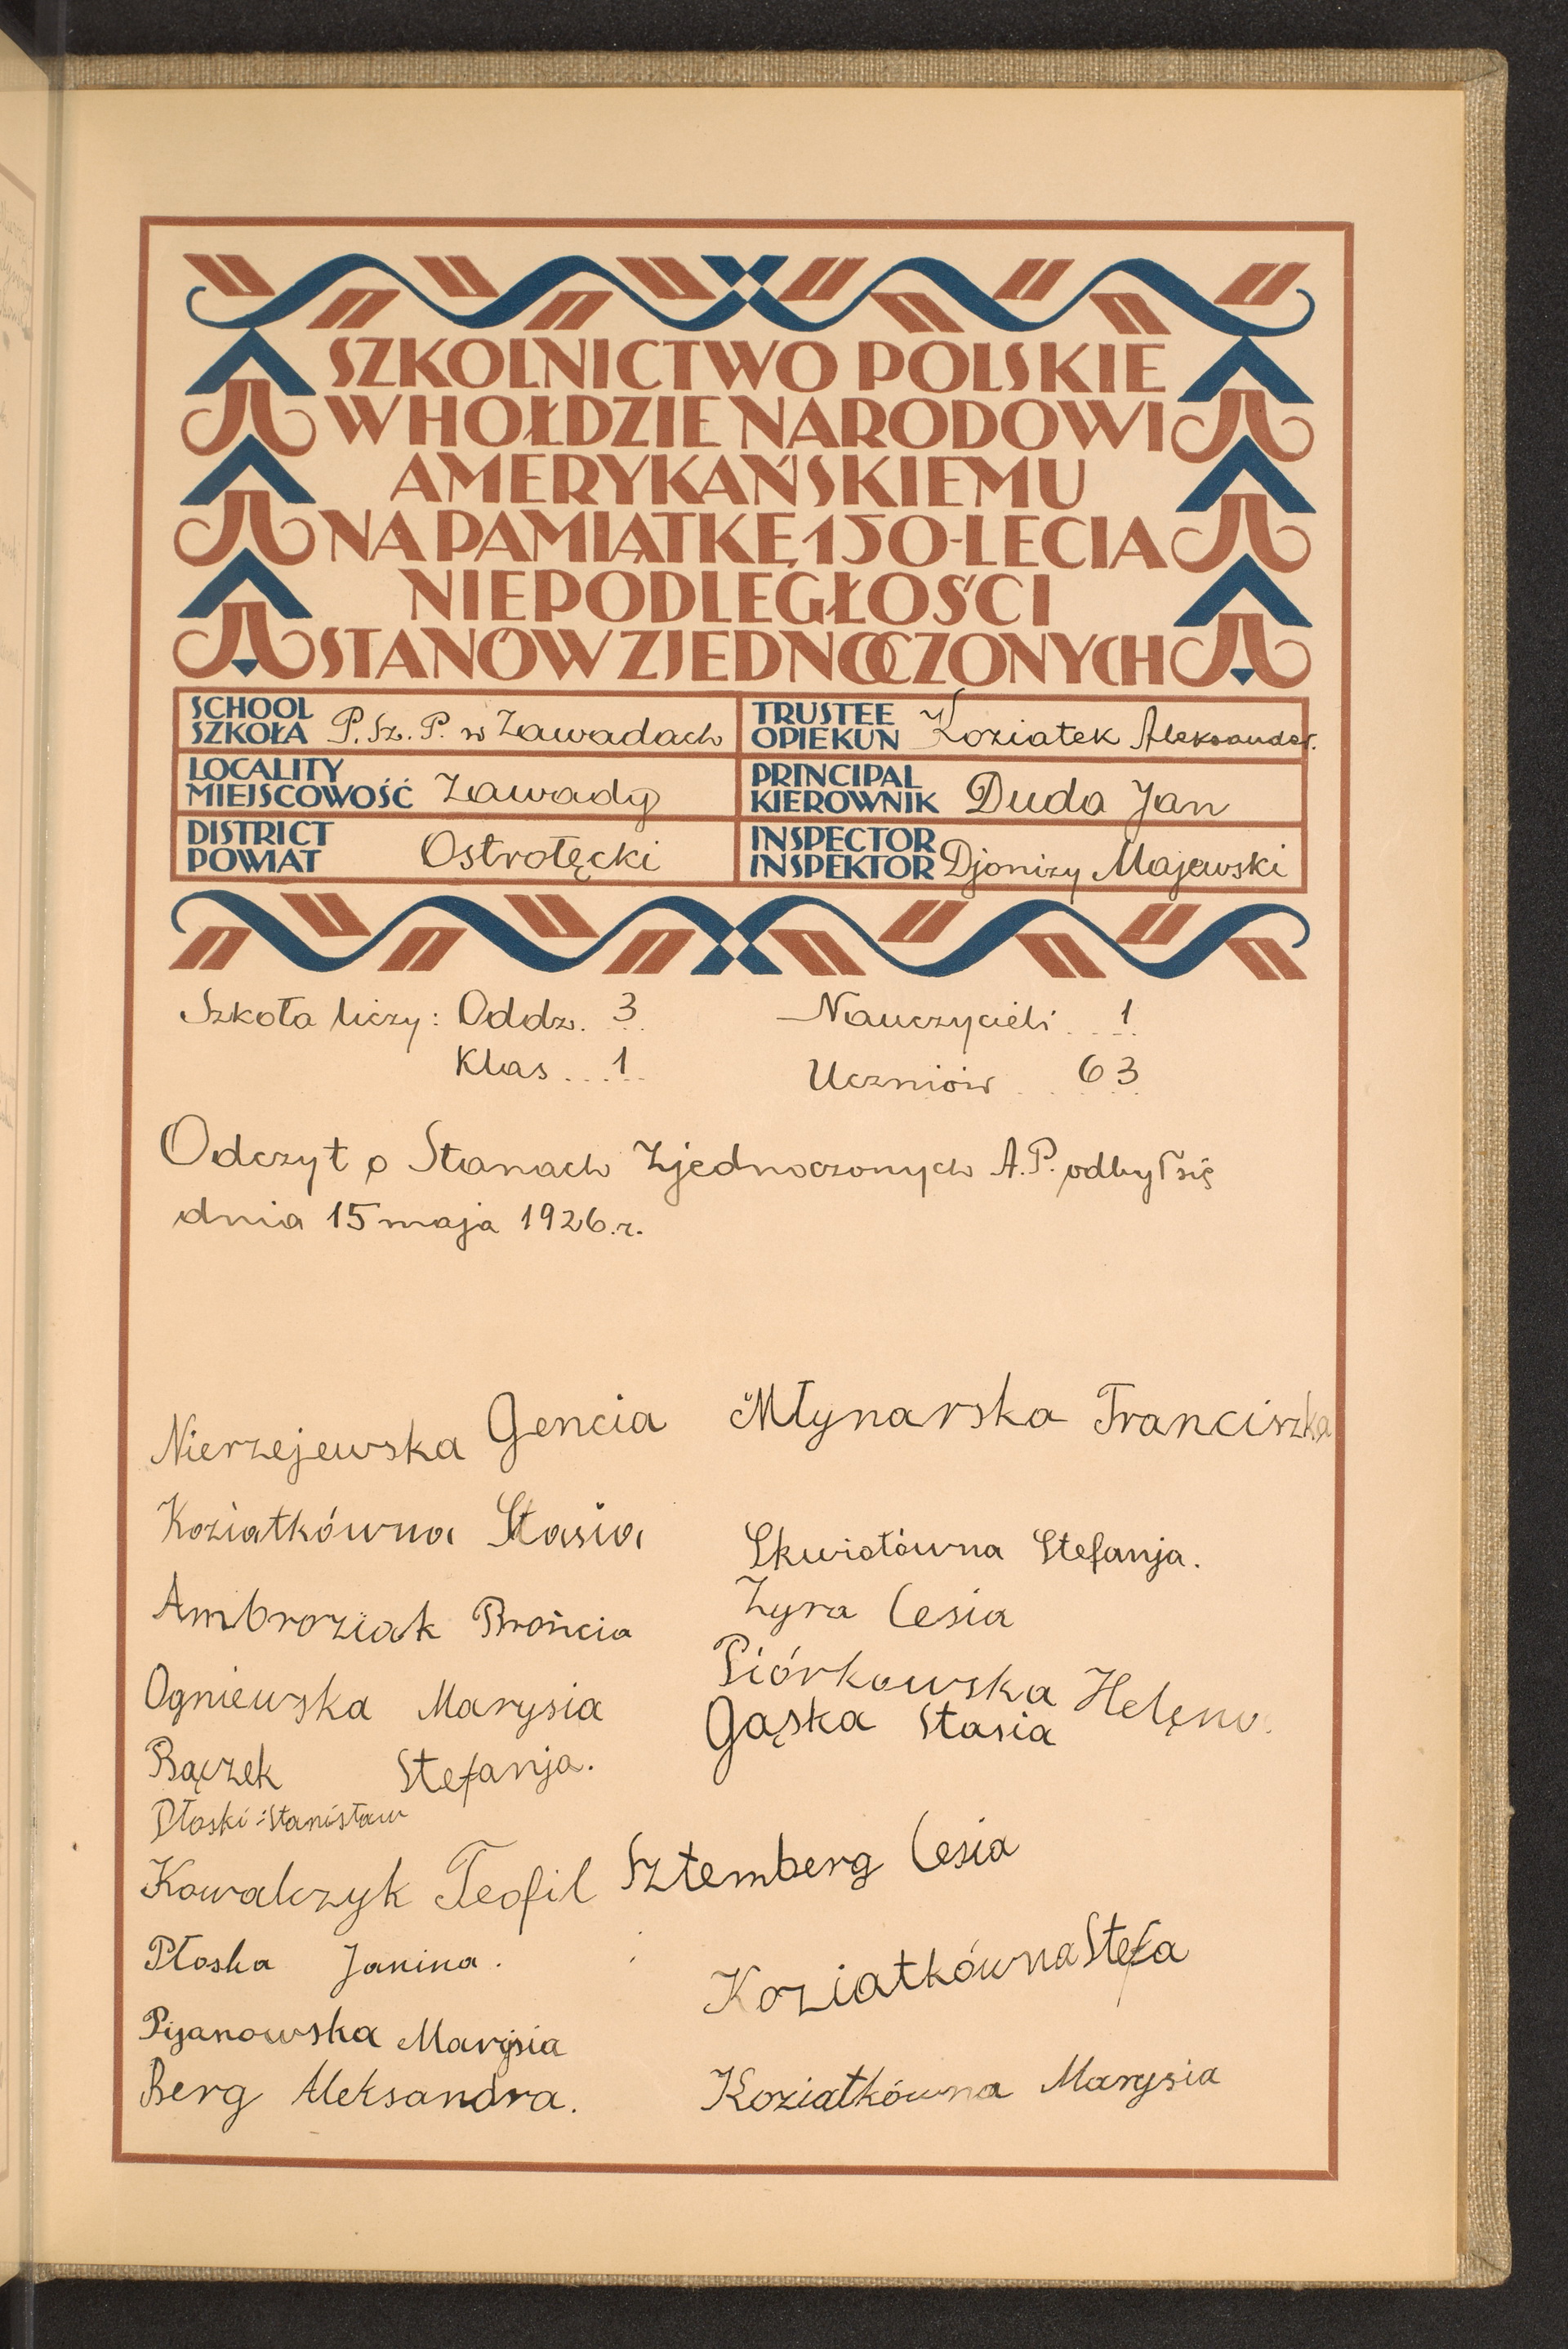 SZKOLNICTWO POLSKIE
W HOŁDZIE NARODOWI
AMERYKAŃSKIEMU
NA PAMIĄTKĘ 150-LECIA
NIEPODLEGŁOŚCI
STANÓW ZJEDNOCZONYCH
SCHOOL
SZKOŁA P. Sz. P. w Zawadach
TRUSTEE
OPIEKUN Koziatek Aleksander.
LOCALITY
MIEJSCOWOŚĆ Zawady
PRINCIPAL
KIEROWNIK Duda Jan
DISTRICT
POWIAT Ostrołęcki
INSPECTOR
INSPEKTOR Djonizy Majewski
Szkoła liczy: Oddz. 3 Nauczycieli 1
Klas 1 Uczniów 63
Odczyt o Stanach Zjednoczonych A.P. odbył się
dnia 15 maja 1926.r.
Nierzejewska Gencia
Młynarska Franciszka
Koziatkówna Stasia
Skwiotówna Stefanja.
Ambroziak Brońcia
Zyra Lesia
Ogniewska Marysia
Piórkowska Helęna
Gąska Stasia
Bączek Stefanja.
Płoski Stanisław
Kowalczyk Teofil
Sztemberg Lesia
Płoska Janina.
Koziatkówna Stefa
Pijanowska Marysia
Berg Aleksandra.
Koziatkówna Marysia